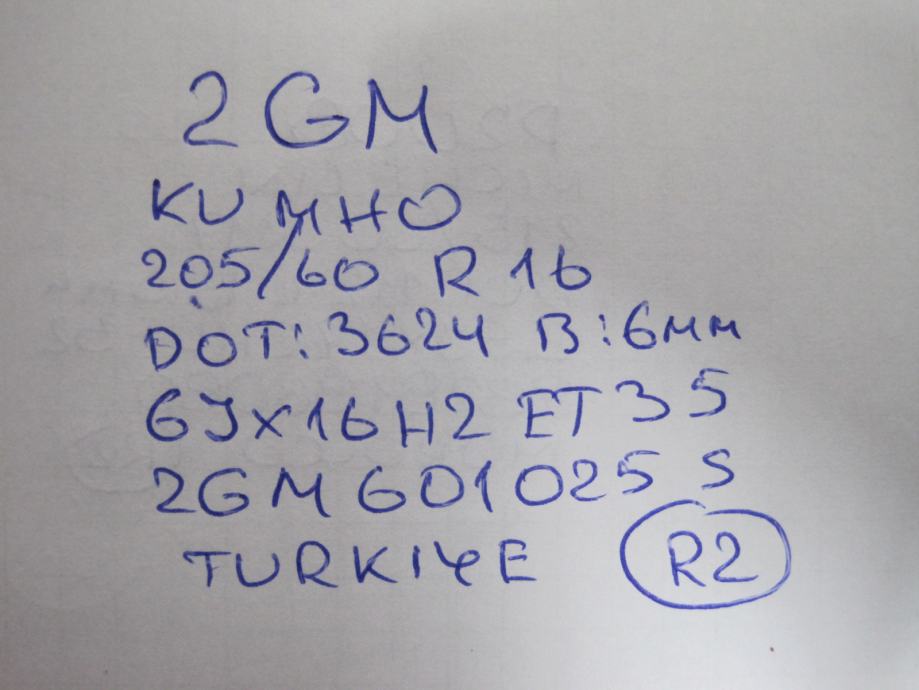 2GM
KUMHO
205/60 R 16
DOT: 3624 B: 6мм
6Jx16H2 ET 35
2GM 601 025 S
TURKIYE R2